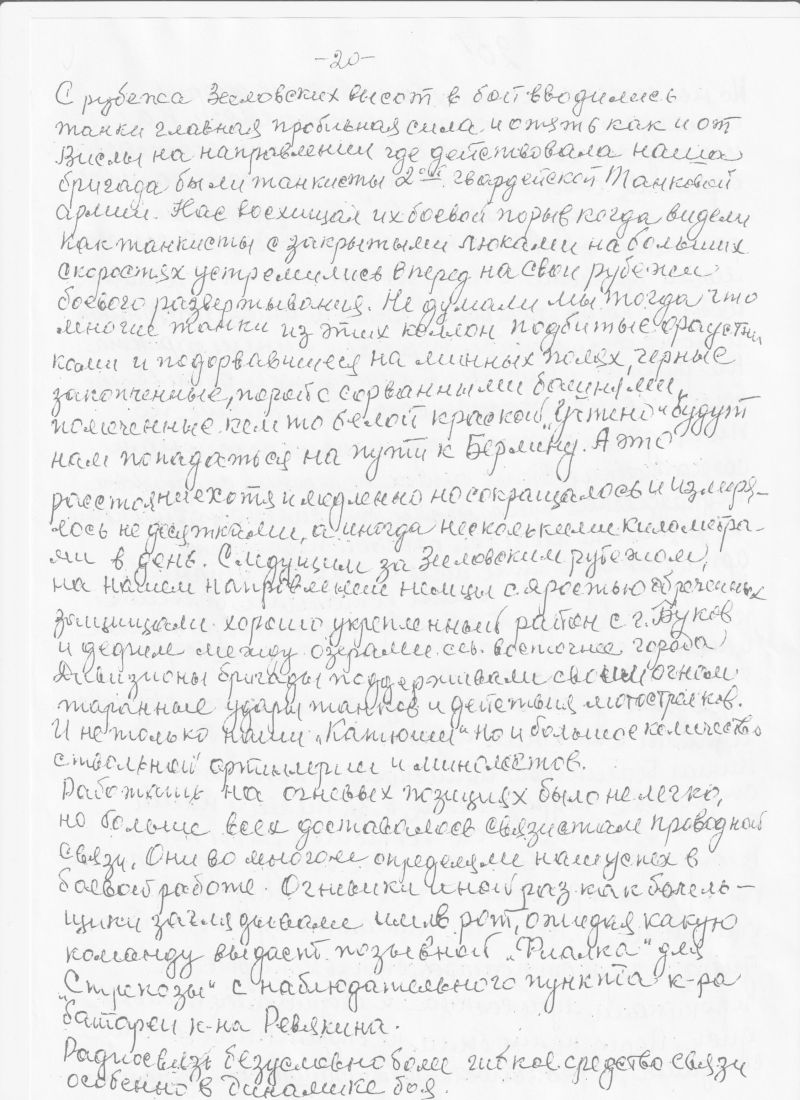 -20-
С рубежа Зееловских высот в бой вводились
танки главная пробивная сила и опять как и от
Вислы на направлении где действовала наша
бригада были танкисты 2ой гвардейской Танковой
армии. Нас восхищал их боевой порыв когда видели
как танкисты с закрытыми люками на больших
скоростях устремились вперед на свои рубежи
боевого развертывания. Не думали мы тогда что
многие танки из этих колонн подбитые фаустни
ками и подорвавшиеся на минных полях, черные
закопченные, порой с сорванными башнями,
помеченные кем то белой краской „Учтено“ будут
нам попадаться на пути к Берлину. А это
расстояние хотя и медленно но сокращалось и измеря-
лось не десятками, а иногда несколькими километра-
ми в день. Следующим за Зееловским рубежом,
на нашем направлении немцы с яростью обреченных
защищали хорошо укрепленный район с г. Буков
и дефиле между озерами сев. восточнее города
Дивизионы бригады поддерживали своим огнем
таранные удары танков и действия мотострелков.
И не только наши „Катюши“ но и большое количество
ствольной артиллерии и минометов.
Работать на огневых позициях было нелегко,
но больше всех доставалось связистам проводной
связи. Они во многом определяли наш успех в
боевой работе. Огневики иной раз как болель-
щики заглядывали им в рот, ожидая какую
команду выдаст позывной „Фиалка“ для
„Стрекозы“ с наблюдательного пункта к-ра
батареи к-на Ревякина.
Радиосвязь безусловно более гибкое средство связи
особенно в динамике боя.